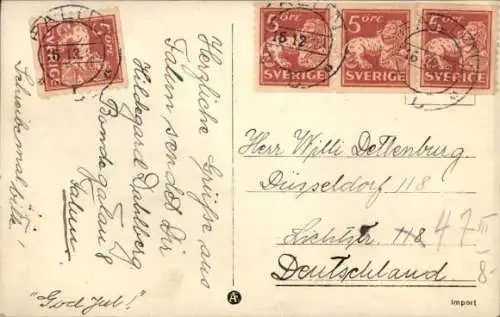 Herzliche Grüsse aus
Falun sendet Dir
Hildegard Dahlberg
Bondegatan 8
Falun
Schreibe mal bitte!
"God Jul!"
5 ÖRE
SVERIGE
5 ÖRE
SVERIGE
5 ÖRE
SVERIGE
16.12
Herr Willi Dettenburg
Düsseldorf 118
Lichtstr. 118 47 III
Deutschland 8
Import